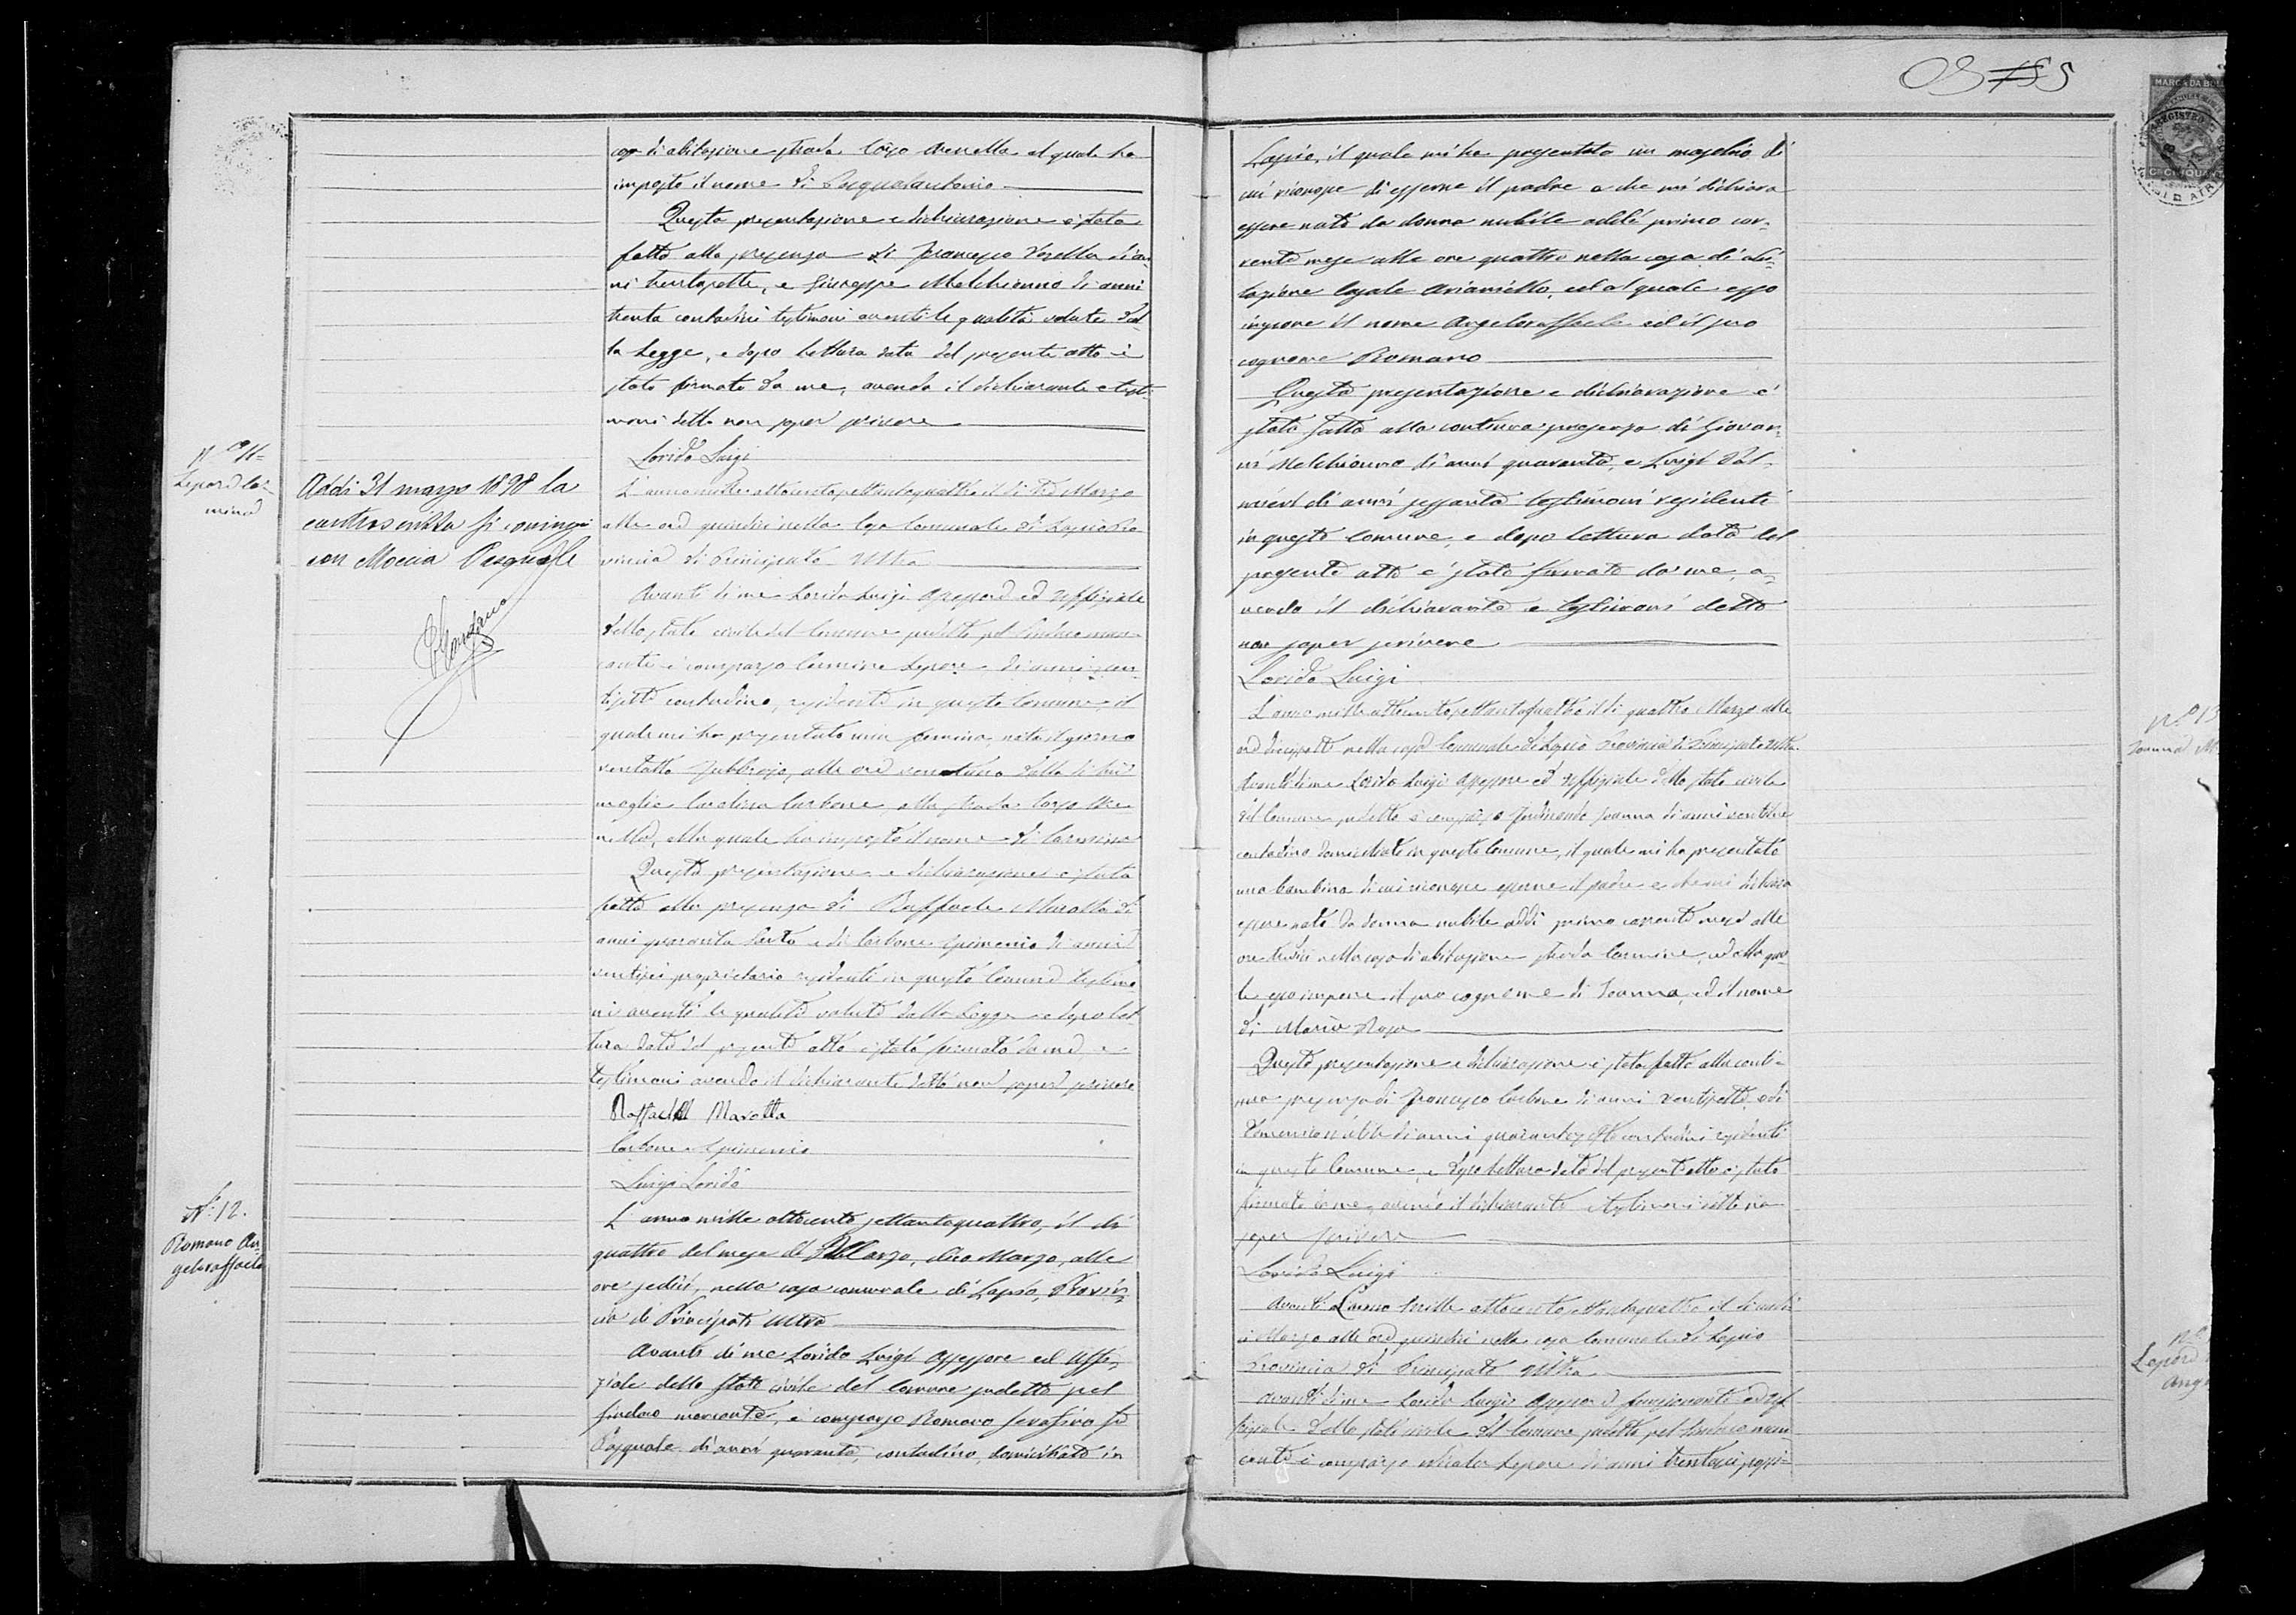 casa di abitazione strada largo Avenella al quale ha
imposto il nome di Pasqualantonio
Questa presentazione e dichiarazione è stata
fatta alla presenza di Francesco di an-
ni trentasette, e Giuseppe Melchionno di anni
trenta contadini testimoni aventi le qualità volute dal-
la Legge, e dopo lettura data del presente atto è
stato firmato da me, avendo il dichiarante e testi-
moni detto non saper scrivere
Lorido Luigi
N.º 11=
Lepore Car-
mina
Addì 31 marzo 1898 la
controscritta si coniugò
con Moccia Pasquale
L'anno mille ottocento settantaquattro il dì tre Marzo
alle ore quindici nella Casa Comunale di Lapio Pro-
vincia di Principato Ultra
Avanti di me Lorido Luigi Assessore ed Uffiziale
dello stato civile del Comune sudetto pel Sindaco man-
cante è comparso Carmine Lepore di anni ven-
tisette contadino, residente in questo Comune, il
quale mi ha presentato una femina, nata il giorno
ventotto Febbrajo, alle ore ventuno dalla di lui
moglie Carolina Carbone, alla strada largo Ave-
nella, alla quale ha imposto il nome di Carmina
Questa presentazione e dichiarazione è stata
fatta alla presenza di Raffaele Marotta di
anni quaranta e di Carbone Epimenio di anni
ventisei proprietario residenti in questo Comune testimo-
ni aventi le qualità volute dalla Legge e dopo let-
tura data del presente atto è stato firmato da me e
testimoni avendo il dichiarante detto non saper scrivere
Raffaele Marotta
Carbone Epimenio
Luigi Lorido
N.º 12.
Romano An-
geloraffaele
L'anno mille ottocento settantaquattro, il dì
quattro del mese di dico Marzo, alle
ore sedici, nella casa comunale di Lapio, Provin-
cia di Principato Ultra
Avanti di me Lorido Luigi Assessore ed Uffi-
ziale dello Stato civile del Comune sudetto pel
sindaco mancante, è comparso Romano Serafino fu
Pasquale di anni quaranta, contadino, domiciliato in
55
MARCA DA BOLLO
Lapio, il quale mi ha presentato un maschio di
cui riconosce di esserne il padre e che mi dichiara
essere nato da donna nubile addì primo cor-
rente mese alle ore quattro nella casa di abi-
tazione Casale Arianiello, ed al quale esso
impone il nome Angeloraffaele ed il suo
cognome Romano
Questa presentazione e dichiarazione è
stata fatta alla continua presenza di Giovan-
ni Melchionno di anni quaranta, e Luigi
di anni sessanta testimoni residenti
in questo Comune, e dopo lettura data del
presente atto è stato firmato da me, a-
vendo il dichiarante e testimoni detto
non saper scrivere
Lorido Luigi
N.º 13
Joanna M
L'anno mille ottocento settantaquattro il dì quattro Marzo alle
ore diciassette nella casa Comunale di Lapio Provincia di Principato Ultra
Avanti di me Lorido Luigi Assessore ed Uffiziale dello stato civile
del Comune sudetto è comparso Joanna di anni
contadino domiciliato in questo Comune, il quale mi ha presentato
una bambina di cui riconosce esserne il padre e che mi dichiara
essere nata da donna nubile addì primo corrente mese alle
ore tredici nella casa di abitazione strada Carmine, ed alla qua-
le esso impone il suo cognome di Joanna, ed il nome
di Maria Rosa
Questa presentazione e dichiarazione è stata fatta alla conti-
nua presenza di Francesco Carbone di anni ventisette, e di
di anni quarantasette contadini residenti
in questo Comune, e dopo lettura data del presente atto è stato
firmato da me, avendo il dichiarante e testimoni detto non
saper scrivere
Lorido Luigi
N.º
Lepore
Ang
L'anno mille ottocento settantaquattro il dì
Marzo alle ore quindici nella casa Comunale di Lapio
Provincia di Principato Ultra
Avanti di me Lorido Luigi Assessore funzionante ed Uf-
fiziale dello stato civile del Comune sudetto pel Sindaco man-
cante è comparso Lepore di anni trentasei possi-